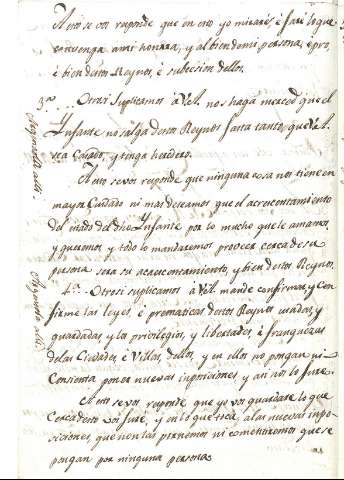 A esto se vos responde que en esto yo miraré, é faré lo que
convenga a mi honrra, y al bien de mi persona, e pro,
é bien destos Reynos, é subcesion dellos.
3ª ... Otrosi Suplicamos à V.Al. nos haga merced que el
Infante no salga destos Reynos fasta tanto, que V.Al.
sea Casado, y tenga heredero.
A esto se vos responde que ninguna cosa nos tiene en
mayor Cuidado ni mas deseamos que el acrecentamiento
del estado del dho Infante por lo mucho que le amamos,
y queremos y todo lo mandaremos proveer cerca de su
persona sera su acrecentamiento, y bien destos Reynos.
4ª ... Otrosi suplicamos à V.Al. mande confirmar, y Con
firme las leyes, é prematicas destos Reynos usadas, y
guardadas y los privilegios, y libertades, é franquezas
de las Ciudades, é Villas, dellos, y en ellos no pongan ni
Consienta poner nuevas imposiciones, y asi nos lo Jure.
A esto se vos responde que yo vos guardaré lo que
Cerca desto vos Juré, y en lo que toca, a las nuevas impo-
siciones, que non las pornemos ni consentiremos que se
pongan por ninguna persona.